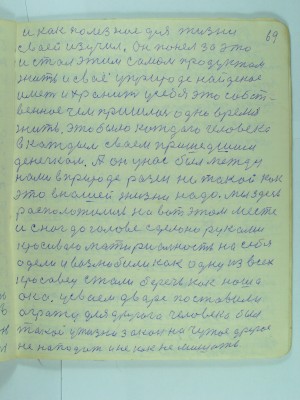 и как полезное для жизни 69
своей изучил. Он понел за это
и стал этим самым продуктом
жить и своё уприроде найденое
имет и хранит усебя это собст-
венное чем пришлая одно время
жить, это было каждаго человека
в каждым своем пришедшим
денёчком. А он унас был между
нами в природе разен не такой как
это внашей жизни надо. мы здесь
расположились на вот этом месте
и с ног до голове сделано руками
красивою материяльность на себя
одели и возлюбили как одну из всех
красавец стали беречь как наша
око. усвоем дваре поставили
аграту для другога человека был
такой указно закон на чужое дорогое
не находит и не как не